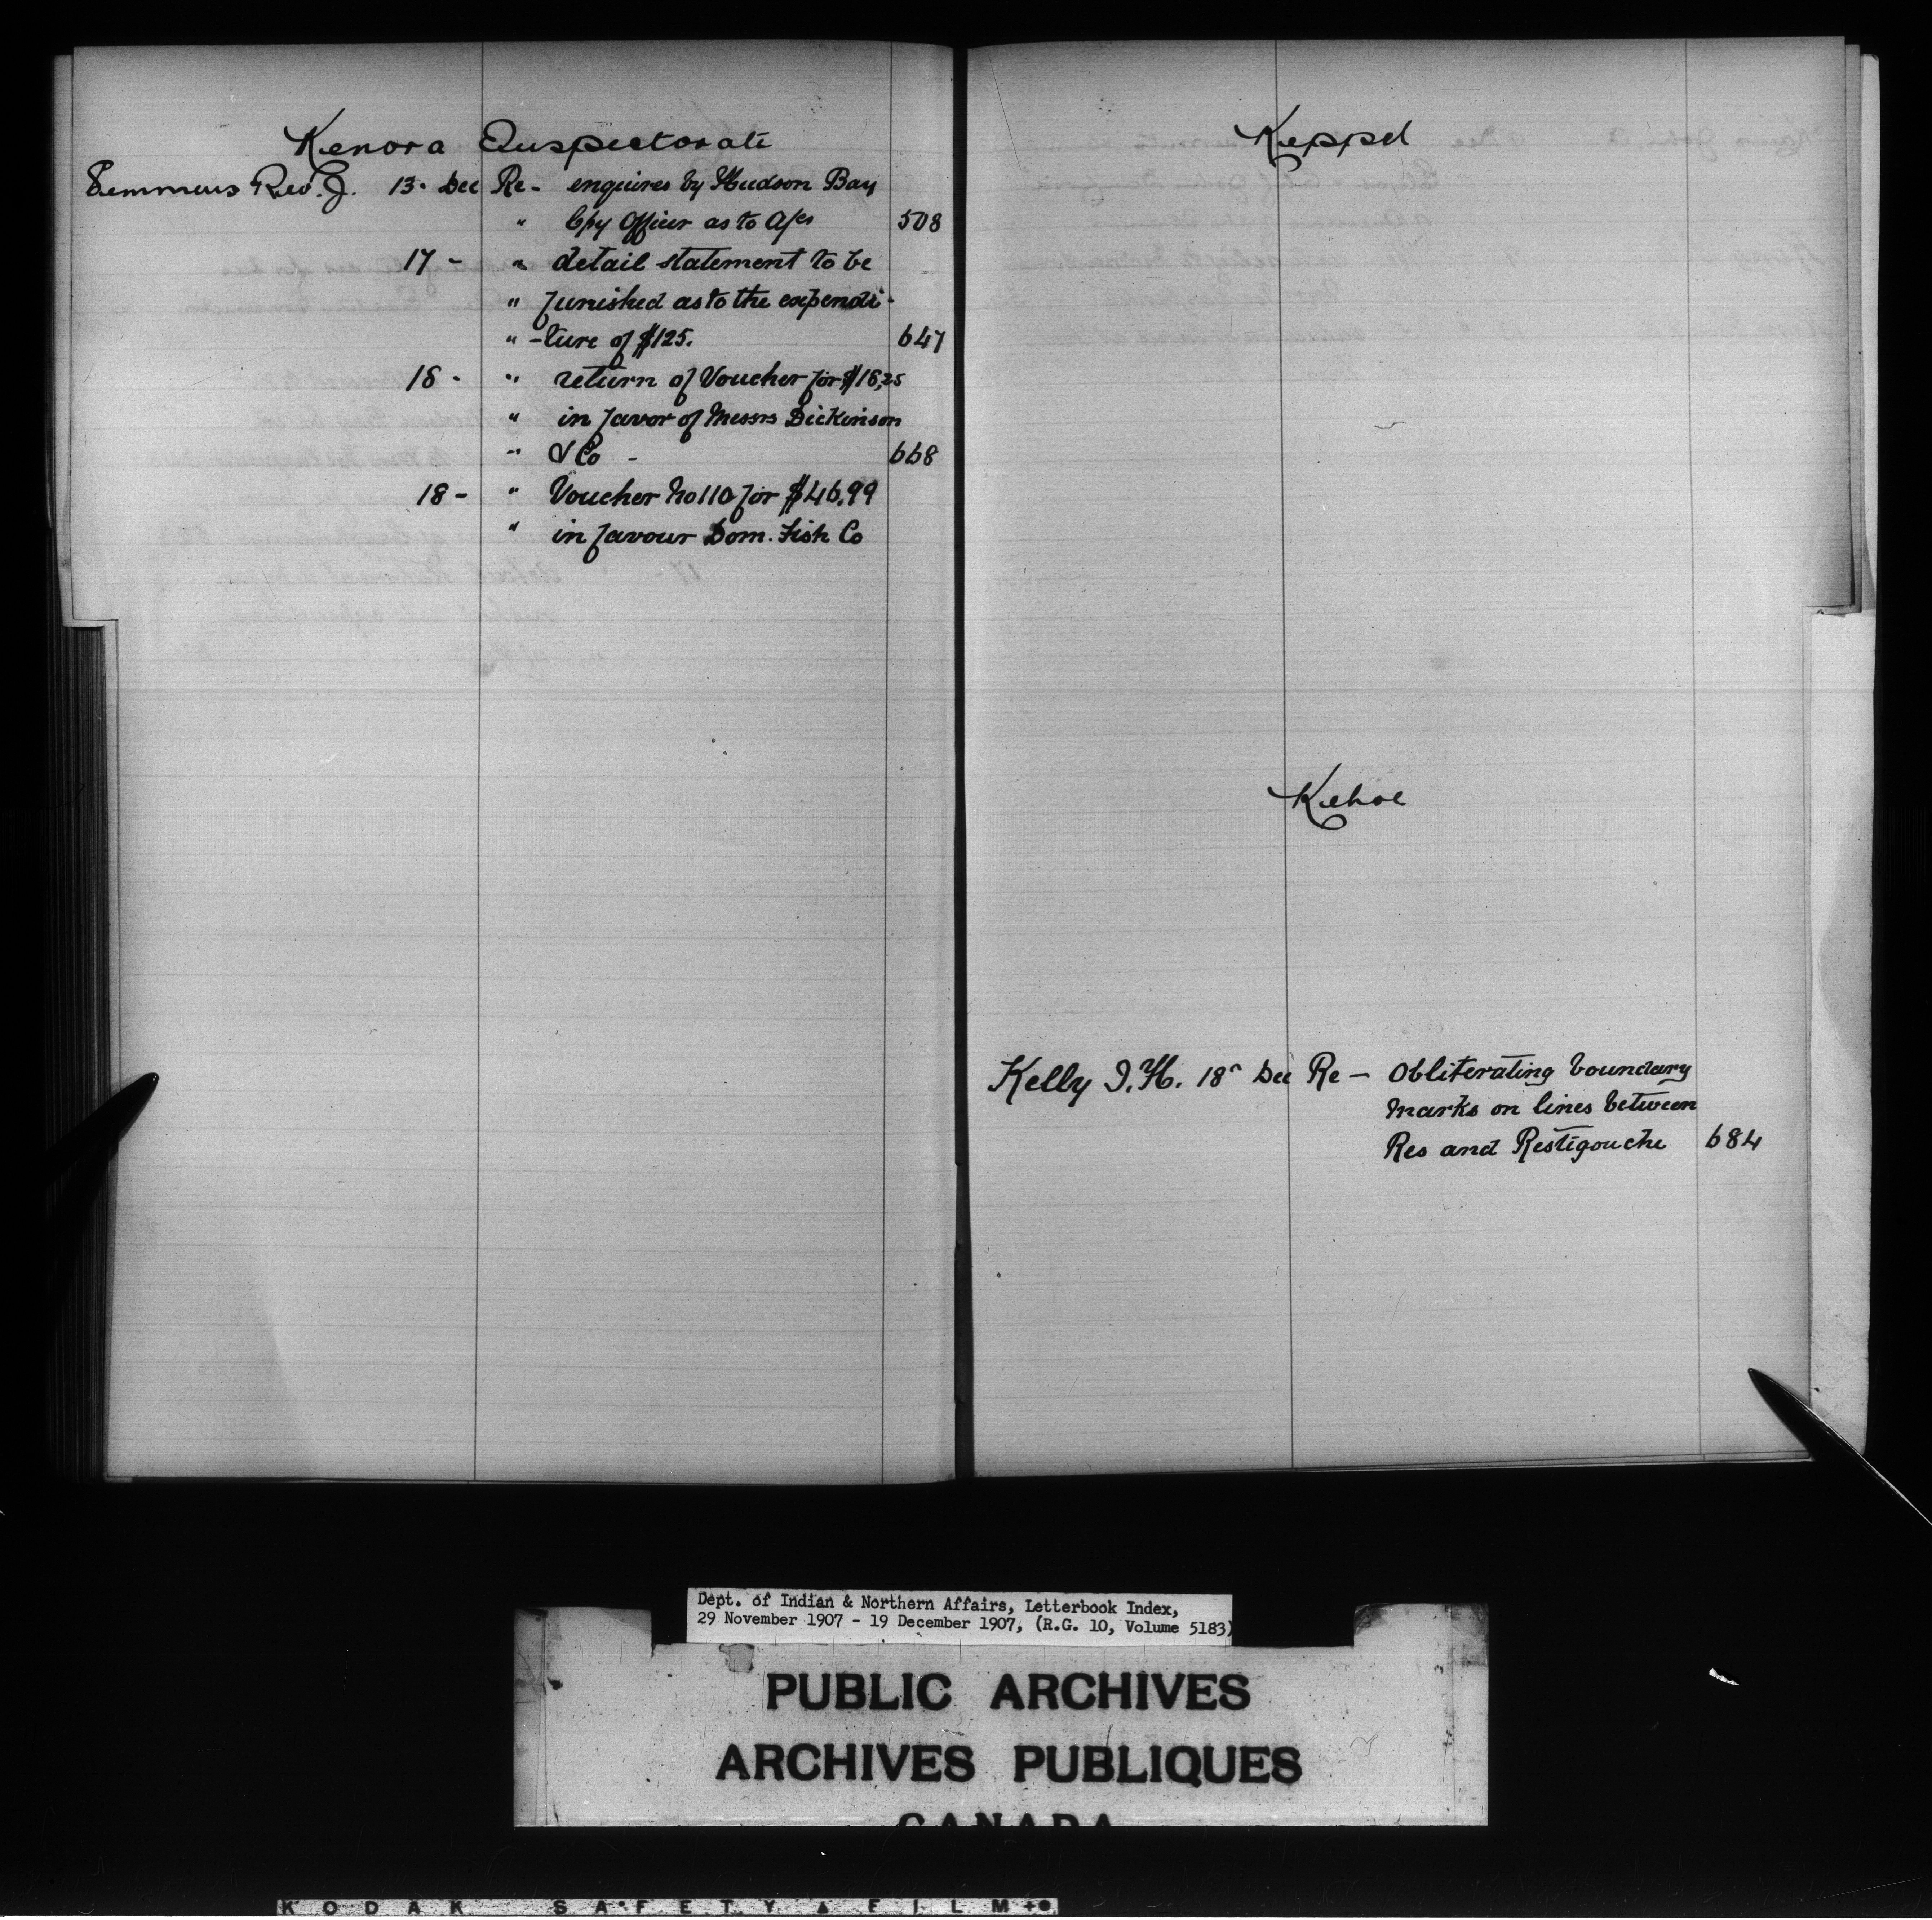 Kenora Inspectorate
Semmens Rev. J. 13. Dec Re- enquires by Hudson Bay
" Cpy Officer as to a/cs 508
17 - " detail statement to be
" furnished as to the expendi-
" -ture of $125. 647
18 - " return of Voucher for $18,25
" in favor of Messrs Dickinson
" & Co - 668
18 - " Voucher No 110 for $46.99
" in favour Dom. Fish Co
Keppel
Kehoe
Kelly I. H. 18" Dec Re - Obliterating boundary
marks on lines between
Res and Restigouche 684
Dept. of Indian & Northern Affairs, Letterbook Index,
29 November 1907 - 19 December 1907, (R.G. 10, Volume 5183)
PUBLIC ARCHIVES
ARCHIVES PUBLIQUES
CANADA
KODAK SAFETY ▲ FILM